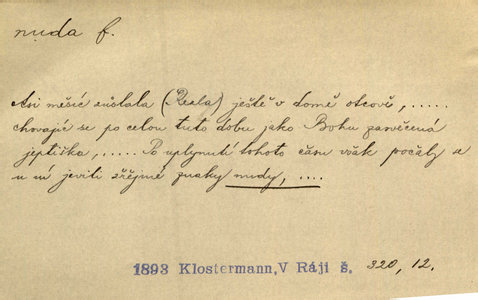 nuda f.
Asi měsíc zůstala (Resla) ještě v domě otcově, .....
chovajíc se po celou tuto dobu jako Bohu zasvěcená
jeptiška, ..... Po uplynutí tohoto času však počaly se
u ní jeviti zřejmé znaky nudy, ....
1893 Klostermann, V Ráji š. 320, 12.